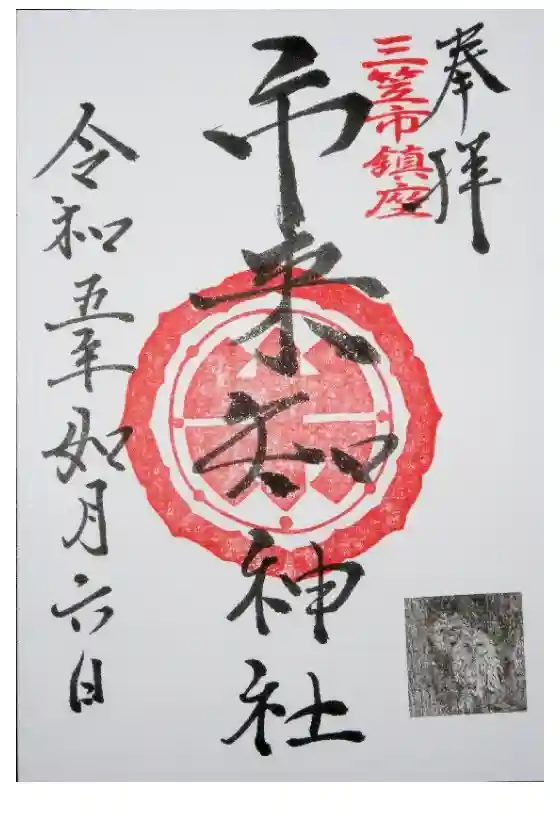 奉拝
三笠市鎮座
市来知神社
令和五年如月六日